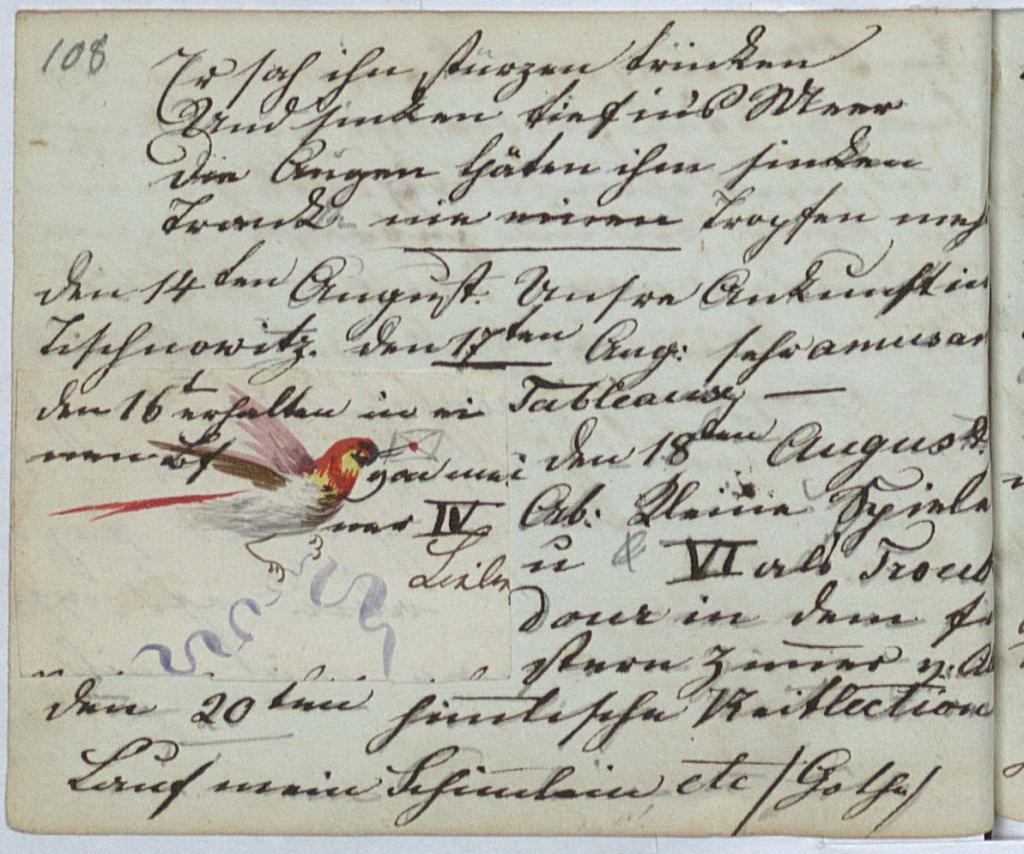 108
Er sah ihn stürzen trinken
Und sinken tief ins Meer
Die Augen thäten ihm sinken
Trank nie einen Tropfen meh
den 14ten August. Unsre Ankunft in
Tischnowitz. den 17ten Aug: sehr amusan
Tableaux —
den 16t erhalten in ei
nen Bf von mei
ner IV
den 18ten August
Ab: Kleine Spiele
u & VI als Troub
dour in dem
stern Zimer v:
den 20ten himlische Reitlection
Lauf mein Schimlein etc (Gothe)